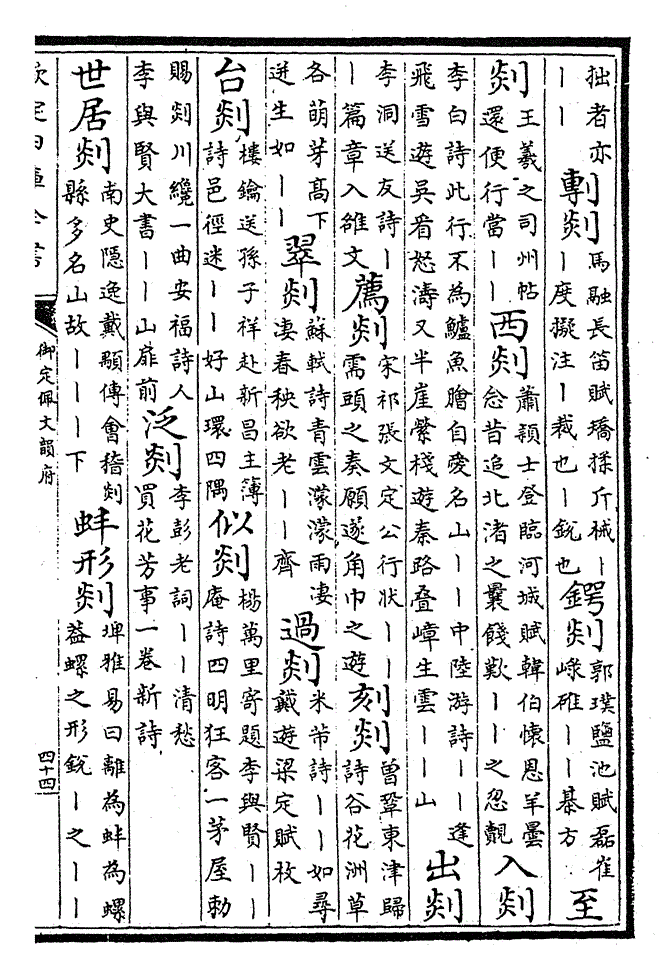 拙者亦
｜｜
剸剡
馬融長笛賦撟揉斤械｜
｜度擬注｜裁也｜銳也
鍔剡
郭璞鹽池賦磊崔
碓｜｜棊方
至
剡
王羲之司州帖
還便行當｜｜
西剡
蕭穎士登臨河城賦韓伯懷恩羊曇
忿昔追北渚之曩餞歎｜｜之忽覿
入剡
李白詩此行不為鱸魚膾自愛名山｜｜中陸游詩｜｜逢
飛雪遊吳看怒濤又半崖縈棧遊秦路疊嶂生雲｜｜山
出剡
李洞送友詩｜
｜篇章入雒文
薦剡
宋祁張文定公行狀｜｜
需頭之奏願遂角巾之遊
刻剡
曾鞏東津歸
詩谷花洲草
各萌芽髙下
迸生如｜｜
翠剡
蘇軾詩青雲濛濛雨淒
淒春秧欲老｜｜齊
過剡
米芾詩｜｜如尋
戴遊梁定賦枚
台剡
樓鑰送孫子祥赴新昌主簿
詩邑徑迷｜｜好山環四隅
似剡
楊萬里寄題李與賢｜｜
庵詩四明狂客一茅屋勅
賜剡川纔一曲安福詩人
李與賢大書｜｜山扉前
泛剡
李彭老詞｜｜清愁
買花芳事一卷新詩
世居剡
南史隱逸戴顒傳會稽剡
縣多名山故｜｜｜下
蚌形剡
埤雅易曰離為蚌為螺
蓋螺之形銳｜之｜｜
欽定四庫全書
御定佩文韻府
四十四